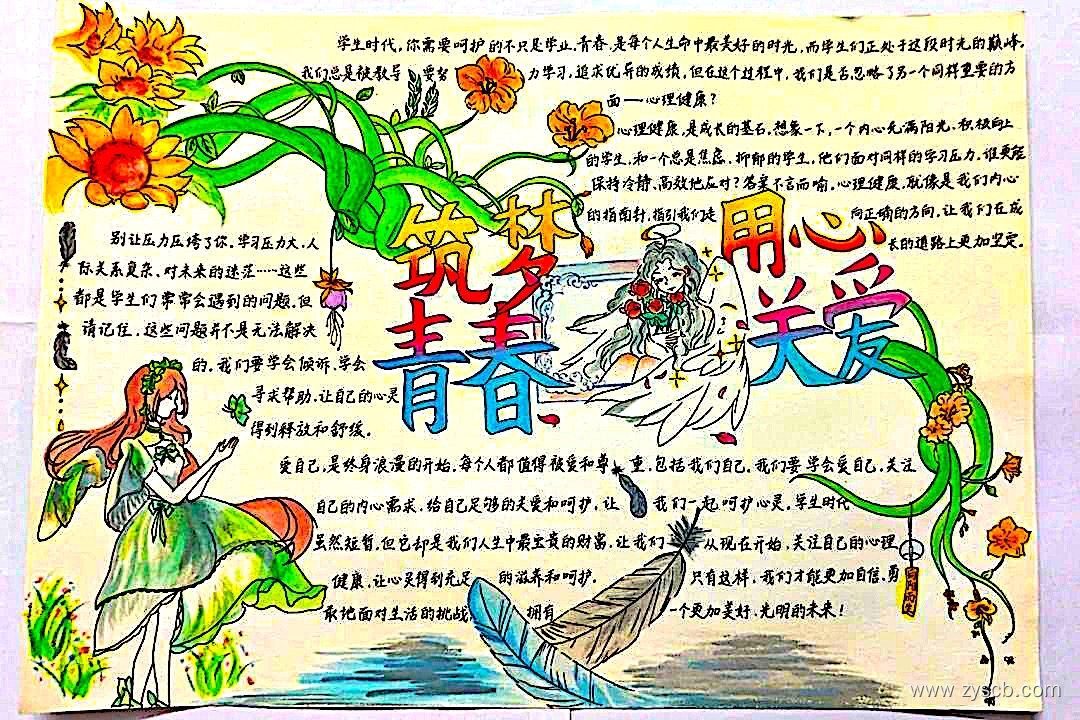 学生时代，你需要呵护的不只是毕业.青春.是每个人生命中最美好的时光，而学生们正处于这段时光的巅峰.
我们总是被教导 要努力学习，追求优异的成绩，但在这个过程中，我们是否忽略了另一个同样重要的方
面——心理健康？
心理健康，是成长的基石。想象一下，一个内心充满阳光、积极向上
的学生，和一个总是焦虑、抑郁的学生，他们面对同样的学习压力，谁更能
保持冷静、高效地应对？答案不言而喻。心理健康，就像是我们内心
的指南针，指引我们走向正确的方向，让我们在成
长的道路上更加坚定。
筑梦
青春
用心
关爱
别让压力压垮了你。学习压力大、人
际关系复杂、对未来的迷茫……这些
都是学生们常常会遇到的问题。但
请记住，这些问题并不是无法解决
的。我们要学会倾诉，学会
寻求帮助，让自己的心灵
得到释放和舒缓。
爱自己，是终身浪漫的开始。每个人都值得被爱和尊重，包括我们自己。我们要学会爱自己，关注
自己的内心需求，给自己足够的关爱和呵护。让我们一起呵护心灵，学生时代
虽然短暂，但它却是我们人生中最宝贵的财富。让我们从现在开始，关注自己的心理
健康，让心灵得到充足的滋养和呵护。只有这样，我们才能更加自信、勇
敢地面对生活的挑战拥有一个更加美好、光明的未来！
www.zyscb.com